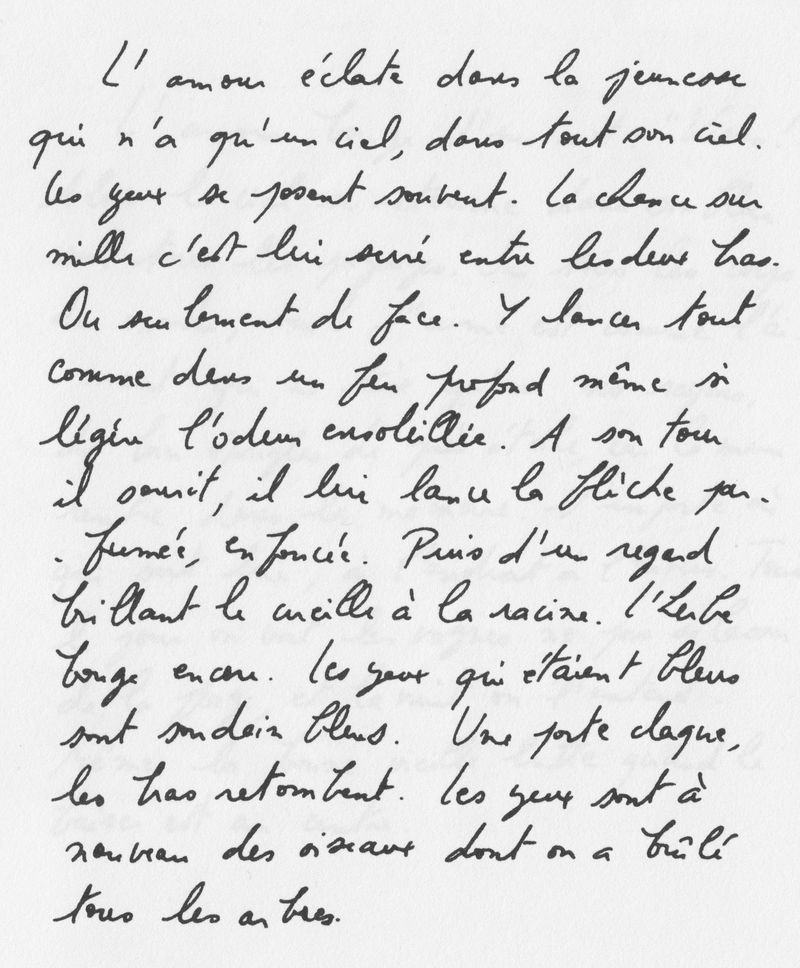 L'amour éclate dans la jeunesse
qui n'a qu'un ciel, dans tout son ciel.
Les yeux se posent souvent. La chance sur
mille c'est lui serré entre les deux bras.
Ou seulement de face. Y lancer tout
comme dans un feu profond même si
légère l'odeur ensoleillée. A son tour
il sourit, il lui lance la flèche par-
- fumée, enfoncée. Puis d'un regard
brillant le cueille à la racine. L'herbe
bouge encore. Les yeux qui étaient bleus
sont soudain bleus. Une porte claque,
les bras retombent. Les yeux sont à
nouveau des oiseaux dont on a brûlé
tous les arbres.